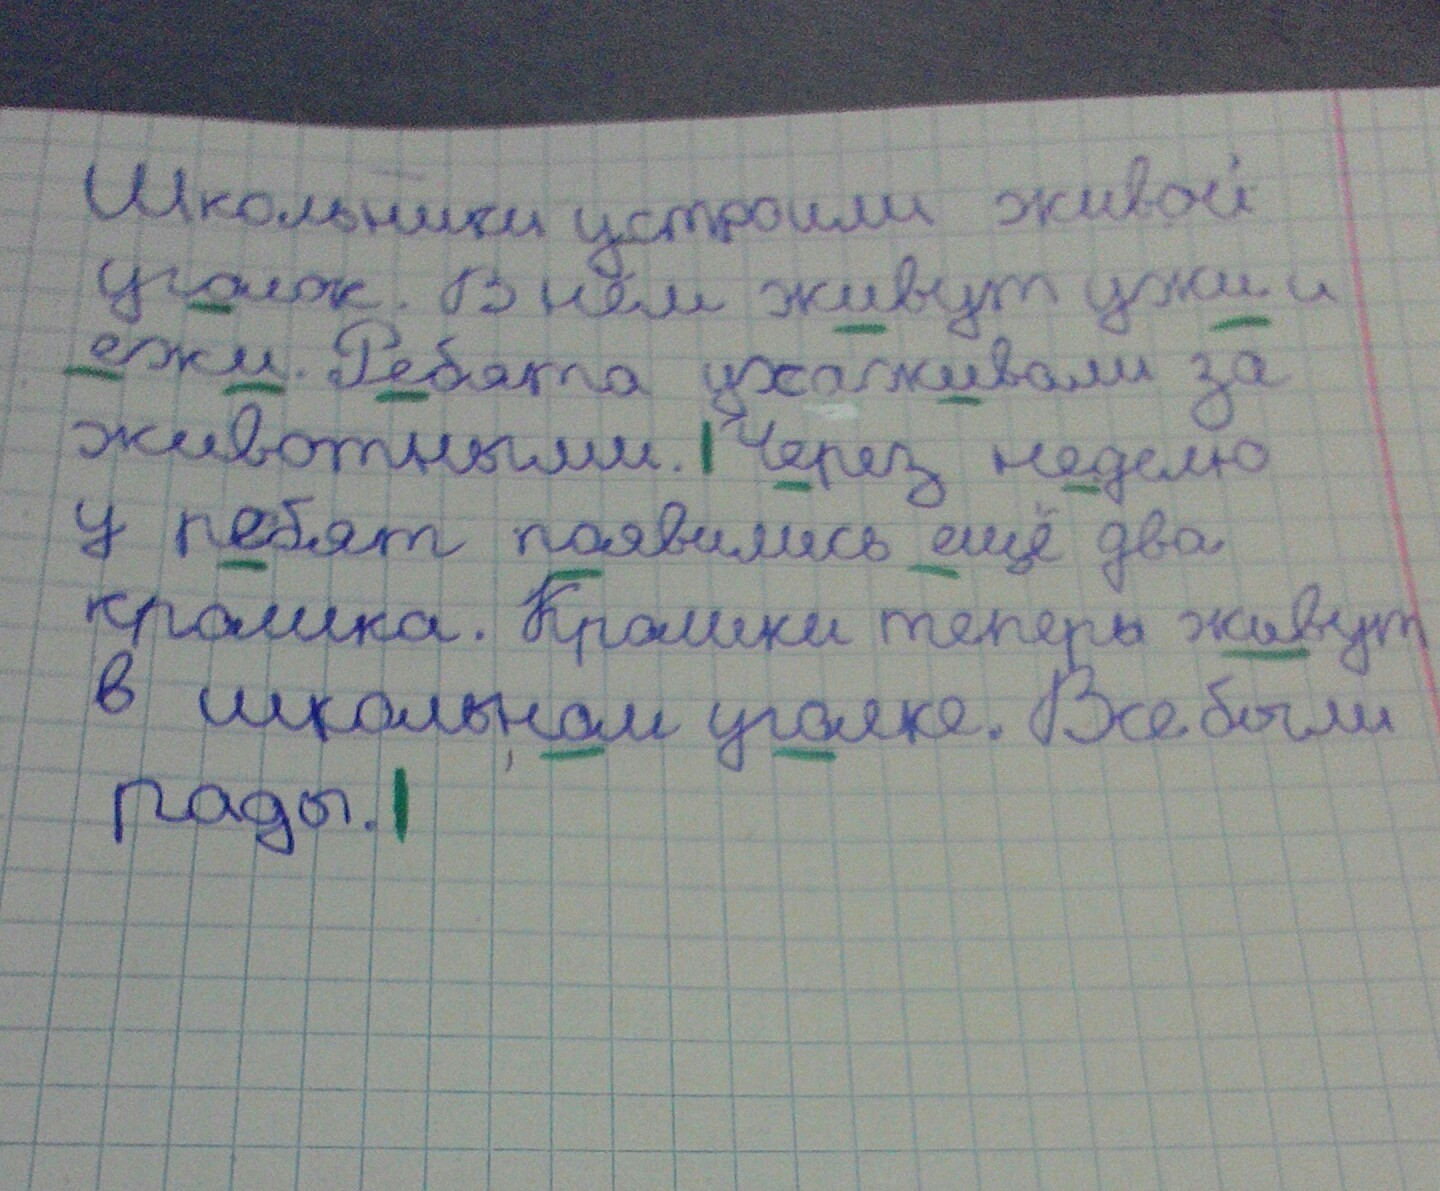 Школьники устроили живой
уголок. В нём живут ужи и
ежи. Ребята ухаживали за
животными. Через неделю
у ребят появились ещё два
кролика. Кролики теперь живут
в школьном уголке. Все были
рады.